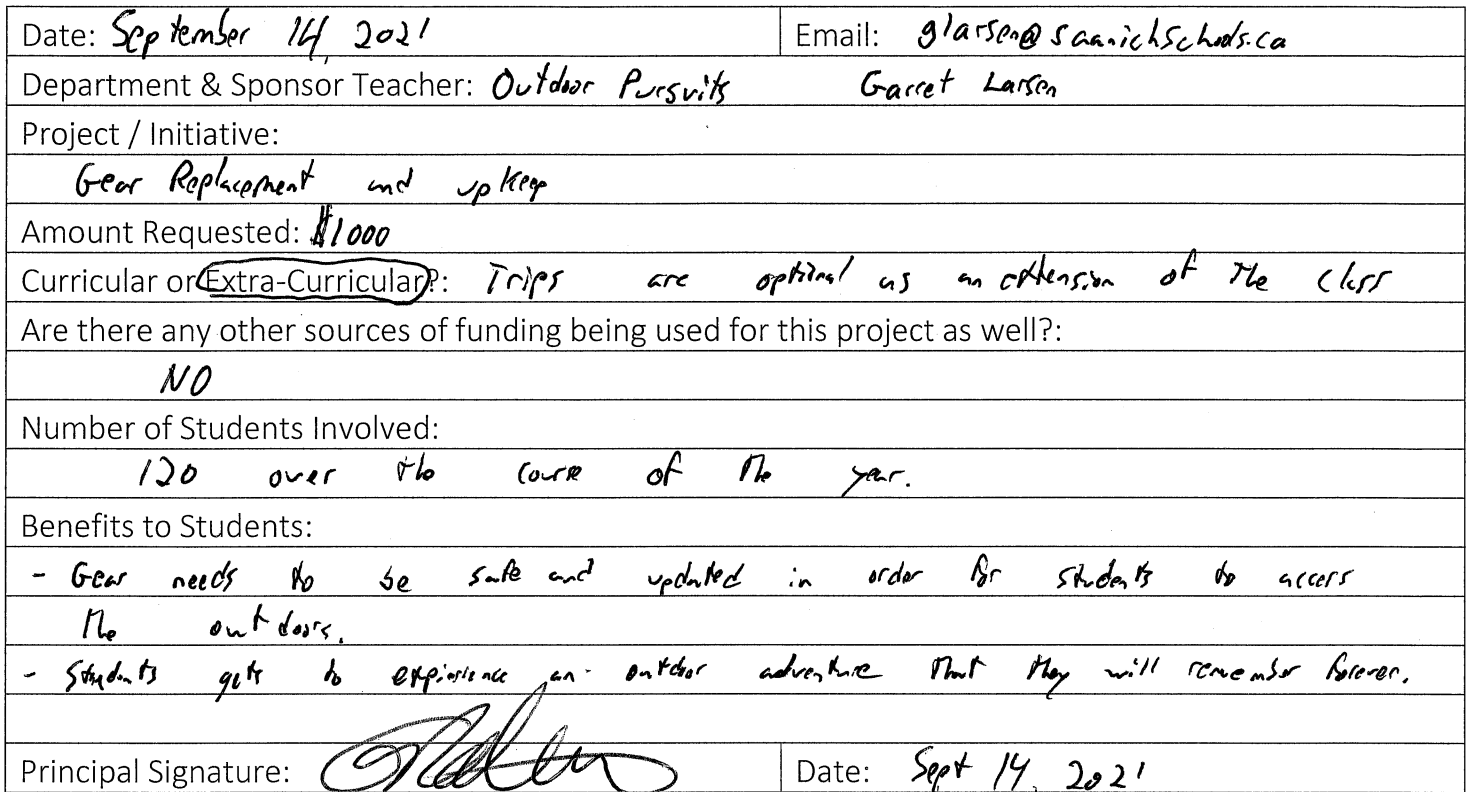 Date: September 14, 2021 Email: glarsen@saanichschools.ca
Department & Sponsor Teacher: Outdoor Pursuits Garret Larsen
Project / Initiative:
Gear Replacement and upkeep
Amount Requested: $1000
Curricular or Extra-Curricular?: Trips are optional as an extension of the class
Are there any other sources of funding being used for this project as well?:
NO
Number of Students Involved:
120 over the course of the year.
Benefits to Students:
- Gear needs to be safe and updated in order for students to access
the outdoors.
- Students gets to expirience an outdoor adventure that they will remember forever.
Principal Signature:
Date: Sept 14, 2021